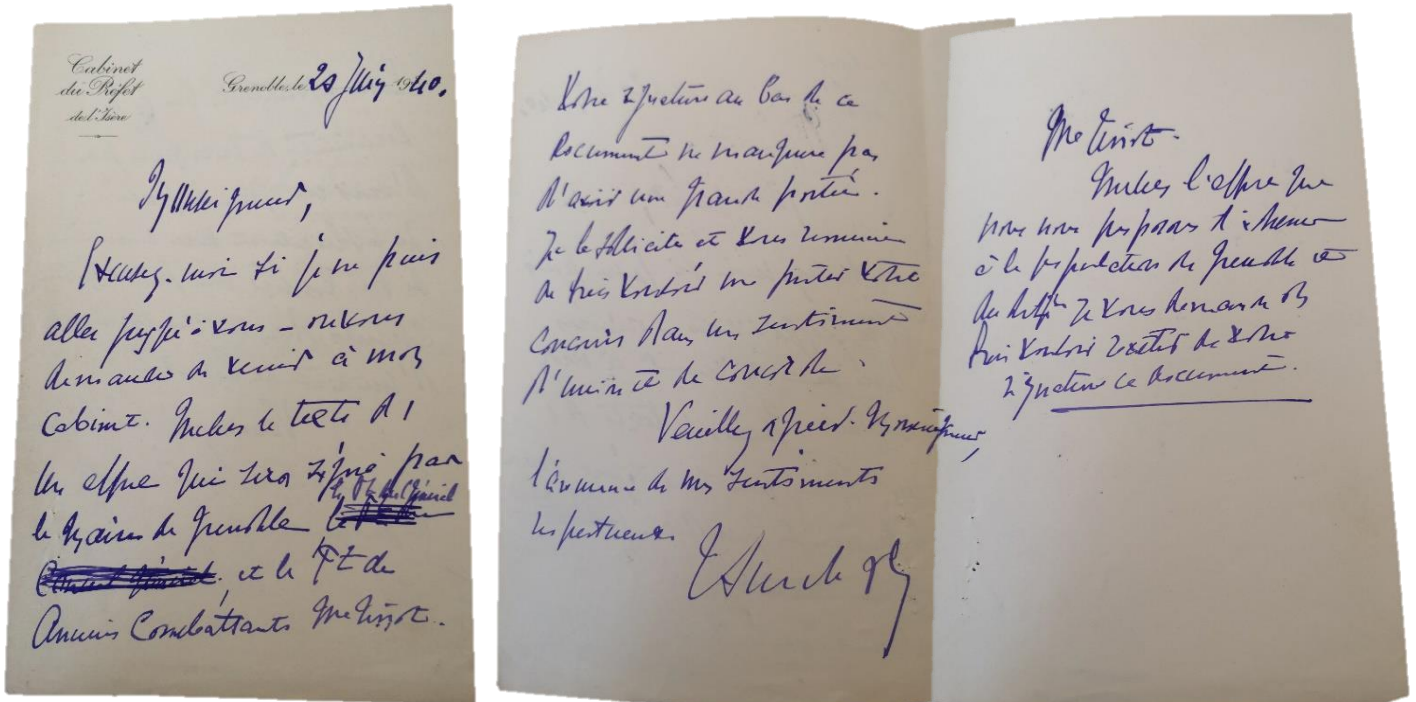 Cabinet
du Préfet
de l'Isère
Grenoble, le 20 Juin 1940.
Monseigneur,
Excusez-moi si je ne puis
aller jusqu'à vous – ou vous
demander de venir à mon
Cabinet. le texte d'
un appel qui sera signé par
le Maire de Grenoble
et le Pt de
Anciens Combattants Me Tissot.
Votre signature au bas de ce
Document ne manquera pas
d'avoir une grande portée.
Je la sollicite et vous remercie
de bien vouloir me prêter votre
concours dans un sentiment
d'union et de concorde.
Veuillez agréer, Monseigneur,
l'assurance de mes sentiments
respectueux
Me Tissot.
l'appel que
nous nous proposons d'adresser
à la population de Grenoble et
du Je vous demande de
bien vouloir revêtir de votre
signature ce Document.